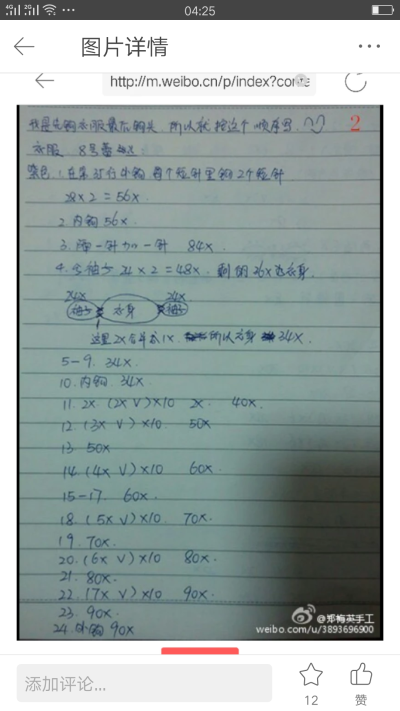 04:25
图片详情
http://m.weibo.cn/p/index?conta
我是先钩衣服最后钩头,所以就按这个顺序写. 2
衣服 8号
紫色:1.在第 外钩,每个短针里钩2个短针
28×2=56x.
2.内钩56x.
3.隔一针加一针 84x.
4.分袖子24×2=48x. 剩余36x为衣身.
24x 24x
袖子 衣身 袖子
这里2x合并成1x. 所以衣身34x.
5-9. 34x
10.内钩.34x
11. 2x. (2x V)×10 2x. 40x.
12. (3x V)×10 50x
13. 50x
14. (4x V)×10 60x
15-17. 60x.
18. (5x V)×10 70x.
19. 70x.
20. (6x V)×10 80x.
21. 80x.
22. (7x V)×10 90x.
23. 90x.
24. 外钩 90x
@郑梅英手工
weibo.com/u/3893696900
添加评论...
12
赞